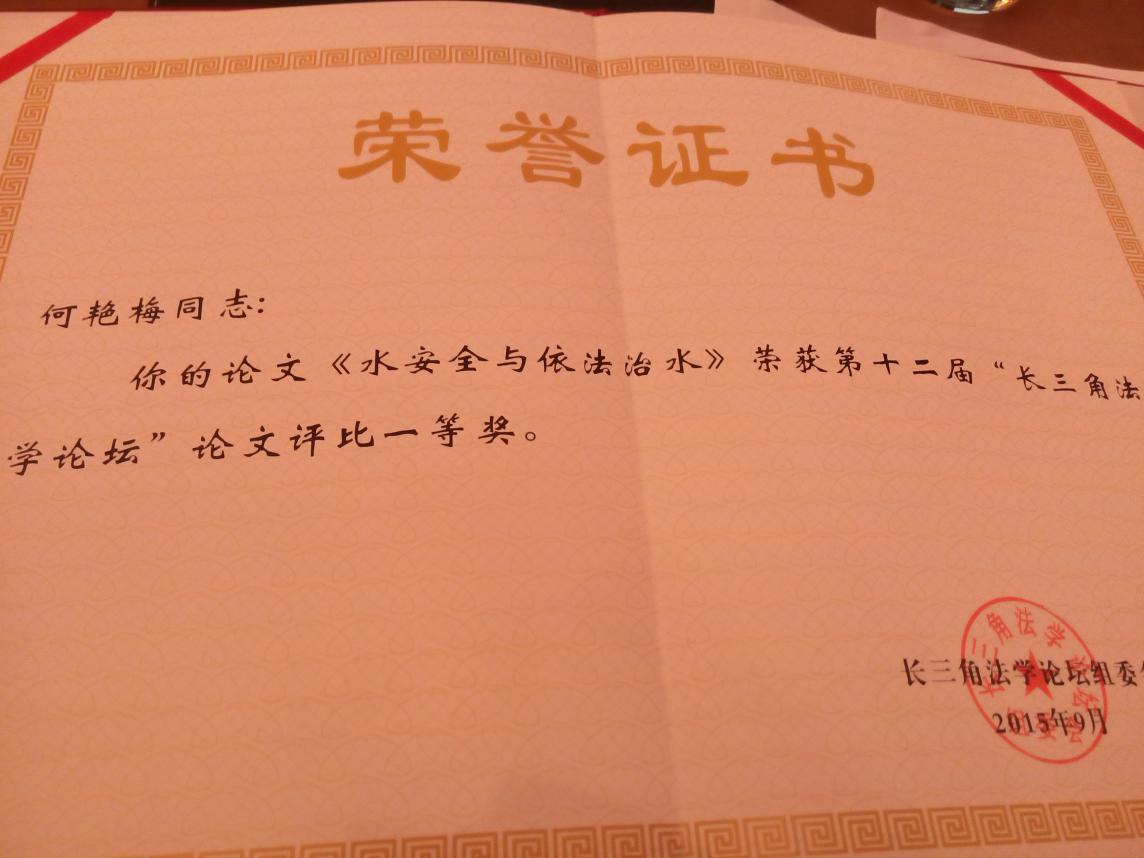 荣誉证书
何艳梅同志：
你的论文《水安全与依法治水》荣获第十二届“长三角法
学论坛”论文评比一等奖。
长三角法学论坛组委
2015年9月
长三角法学论坛
组委会